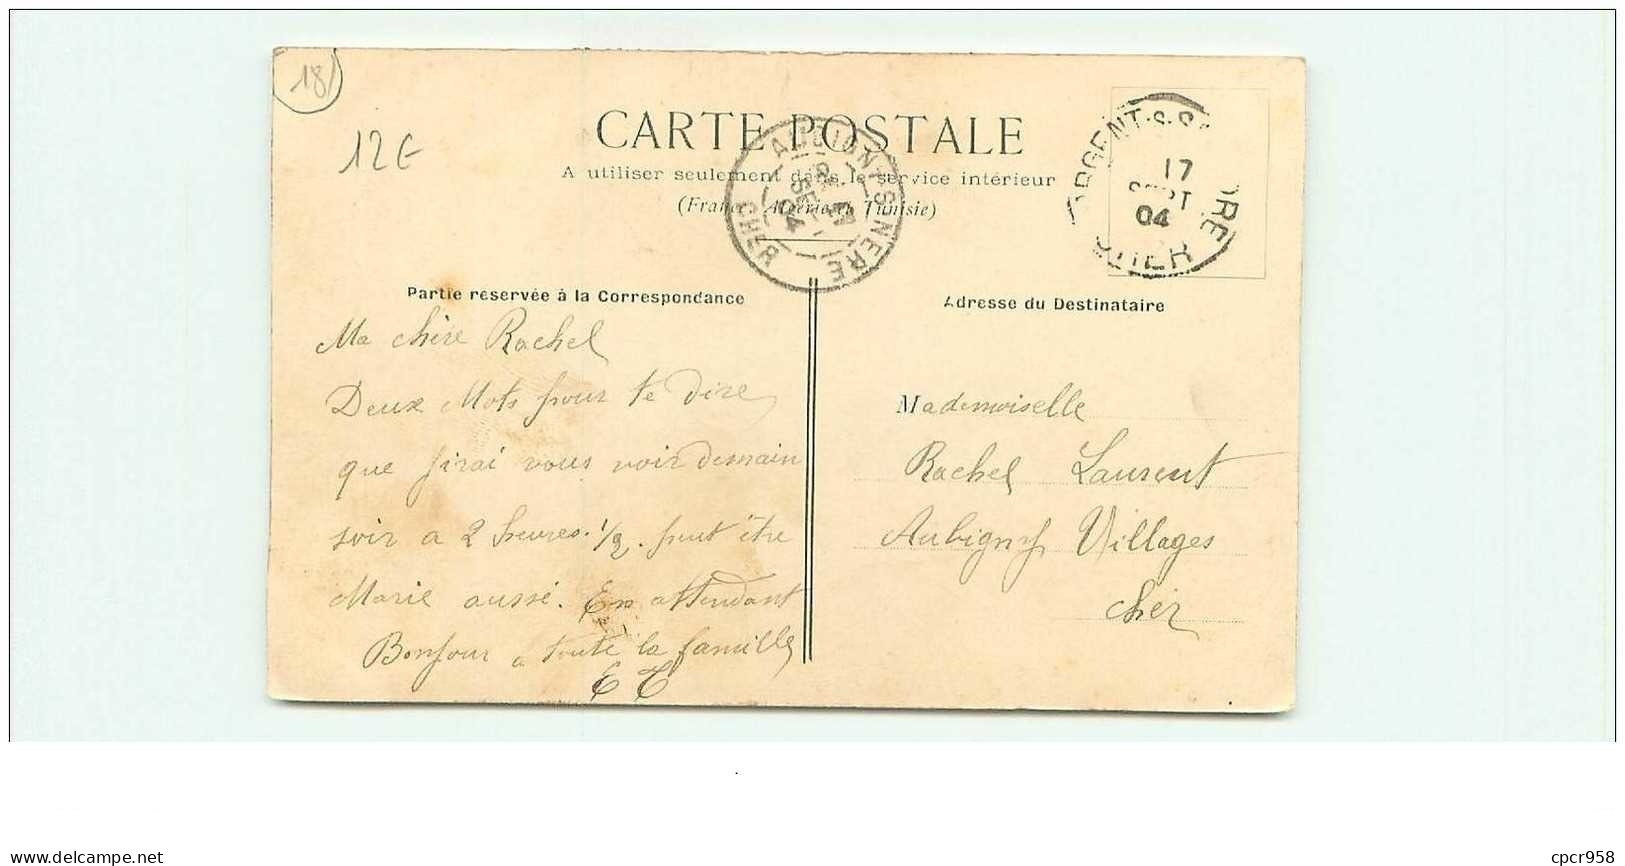 18
12€
CARTE POSTALE
A utiliser seulement dans le service intérieur
(France, Algérie et Tunisie)
AUBIGNY-S-NERE
17
SEPT
04
CHER
ARGENT-S-SAULDRE
17
SEPT
04
CHER
Partie réservée à la Correspondance
Ma chère Rachel
Deux Mots pour te dire
que j'irai vous voir demain
soir a 2 heures 1/2. peut être
Marie aussi. En attendant
Bonjour a toute la famille
E T
Adresse du Destinataire
Mademoiselle
Rachel Laurent
Aubigny Villages
Cher
delcampe.net
cpcr958